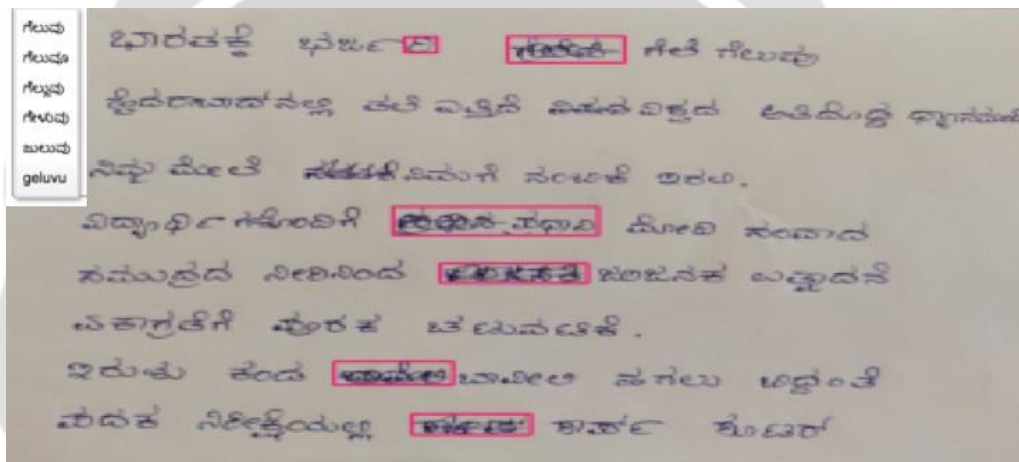 ಗೆಲುವು
ಗೆಲುವೂ
ಗೆಲ್ಲುವು
ಗೇಳುವು
ಜುಲುವು
geluvu
ಭಾರತಕ್ಕೆ ಭರ್ಜರಿ ಗೆಲುವು
ಹೈದರಾಬಾದ್‌ನಲ್ಲಿ ತಲೆ ಎತ್ತಿದೆ ವಿಶ್ವದ ಅತಿದೊಡ್ಡ
ನಿಮ್ಮ ಮೇಲೆ ನಿಮಗೆ ನಂಬಿಕೆ ಇರಲಿ.
ವಿದ್ಯಾರ್ಥಿಗಳೊಂದಿಗೆ ಮೋದಿ ಸಂವಾದ
ಸಮುದ್ರದ ನೀರಿನಿಂದ ಜಲಜನಕ ಉತ್ಪಾದನೆ
ಏಕಾಗ್ರತೆಗೆ ಪೂರಕ ಚಟುವಟಿಕೆ.
ಇರುಳು ಕಂಡ ಬಾವೀಲಿ ಹಗಲು ಬಿದ್ದಂತೆ
ಪದಕ ನಿರೀಕ್ಷೆಯಲ್ಲಿ ಶಾರ್ಪ್ ಶೂಟರ್